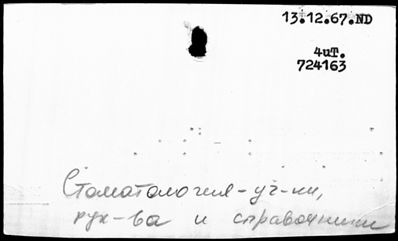 13.12.67.ND
4иТ.
724163
Стоматология-уч-ки,
рук-ва и справочники